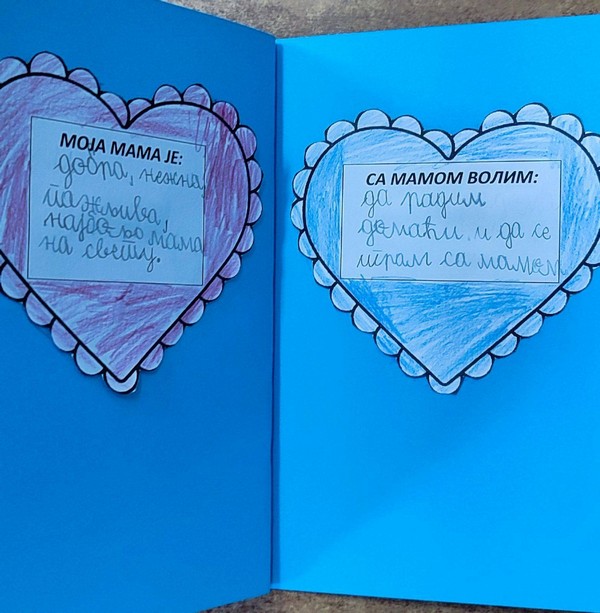 МОЈА МАМА ЈЕ:
добра, нежна,
пажљива,
најбоља мама
на свету.
СА МАМОМ ВОЛИМ:
да радим
домаћи и да се
играм са мамом